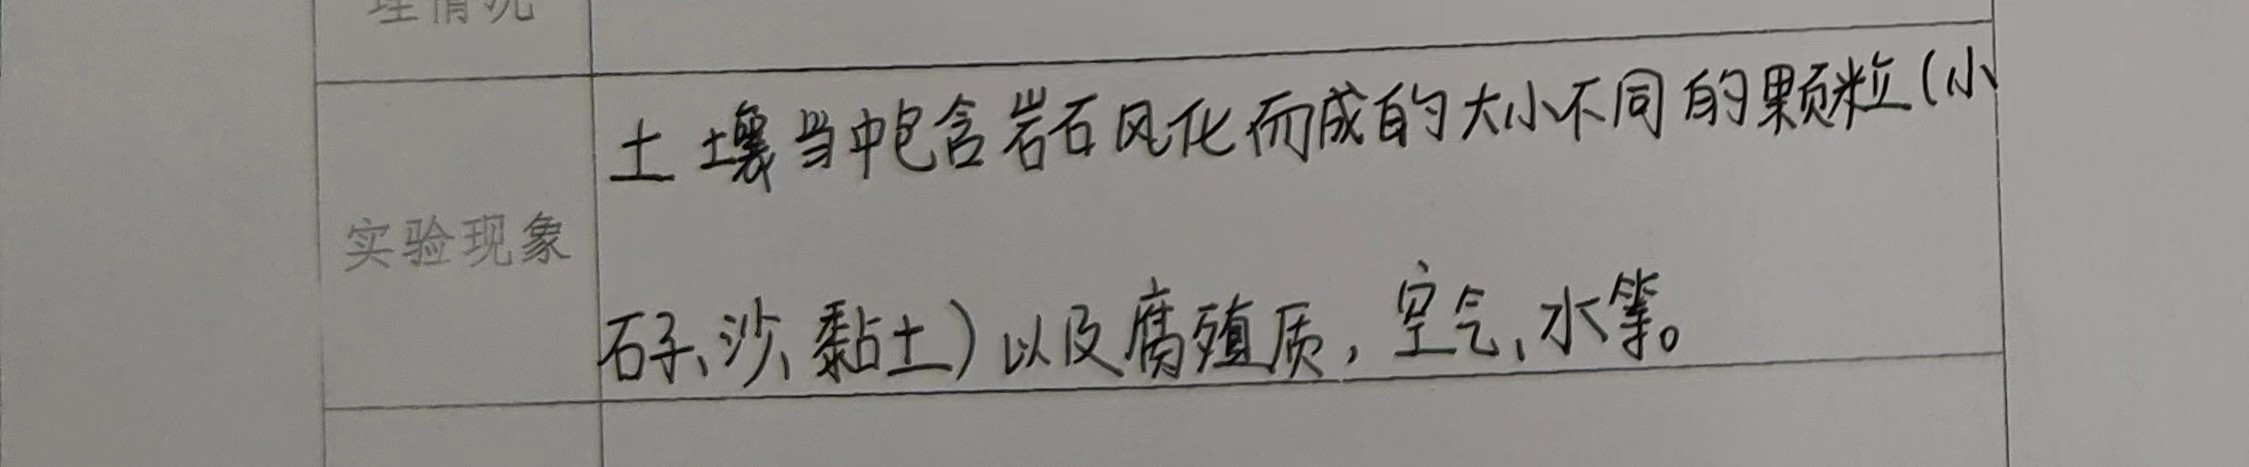 理情况
土壤当中包含岩石风化而成的大小不同的颗粒(小
实验现象
石子、沙、黏土)以及腐殖质,空气、水等。